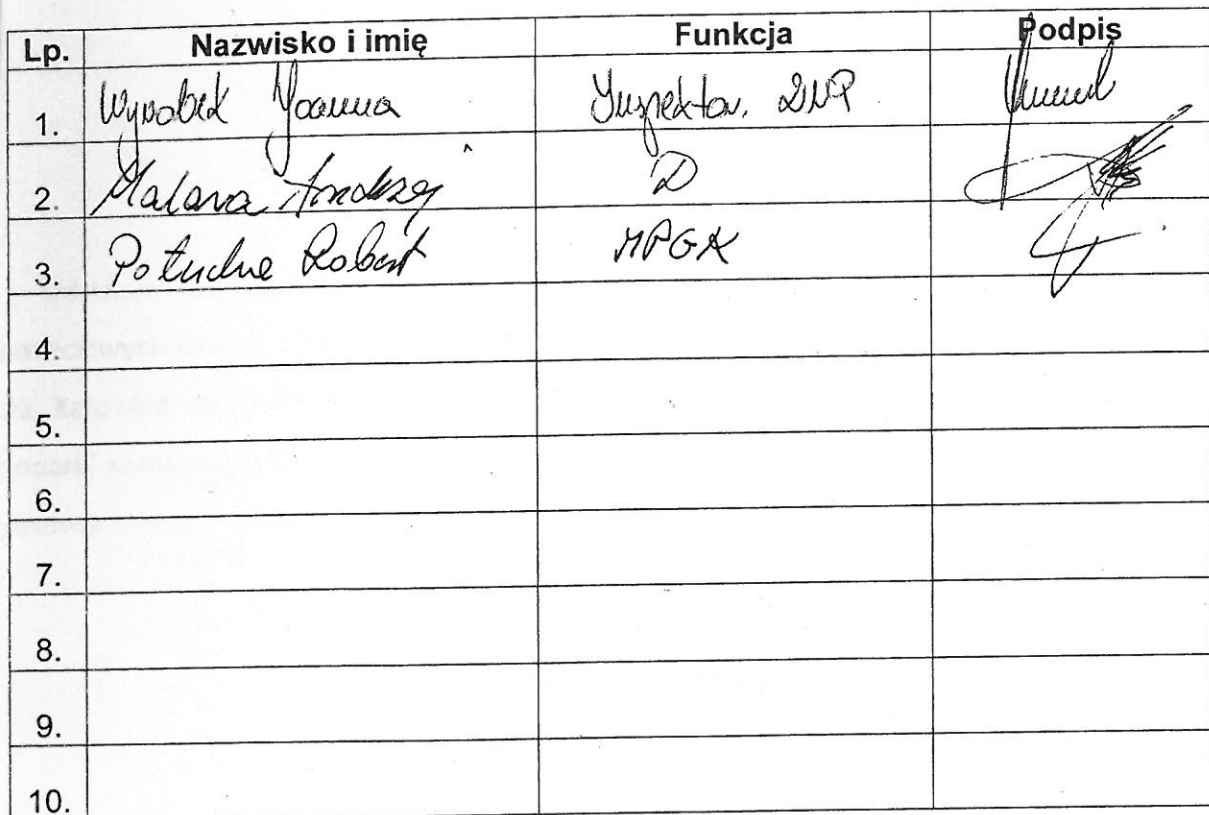 Lp. Nazwisko i imię Funkcja Podpis
1. Wyrobek Joanna Inspektor. DNP
2. Malara Andrzej D
3. Połuche Robert MPGK
4.
5.
6.
7.
8.
9.
10.